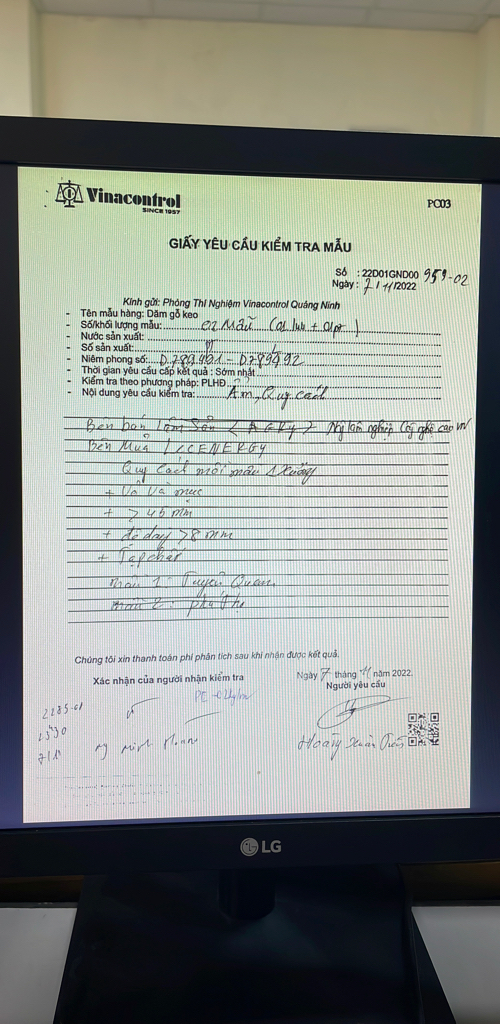 Vinacontrol
SINCE 1957
PC03
GIẤY YÊU CẦU KIỂM TRA MẪU
Số : 22D01GND00 959-02
Ngày : 7/11/2022
Kính gửi: Phòng Thí Nghiệm Vinacontrol Quảng Ninh
- Tên mẫu hàng: Dăm gỗ keo
- Số/khối lượng mẫu: 02 Mẫu (01 lưu + 01pt)
- Nước sản xuất:
- Số sản xuất:
- Niêm phong số:
- Thời gian yêu cầu cấp kết quả : Sớm nhất
- Kiểm tra theo phương pháp: PLHĐ
- Nội dung yêu cầu kiểm tra: Ẩm, Quy cách
Bên bán Lâm Sản <AGRY> lâm nghiệp Công nghệ cao VN
Bên Mua ENERGY
Quy cách mỗi mẫu 1 Xưởng
+ Vỏ và mục
+ > 45 mm
+ độ dày > 8 mm
+ Tạp chất
mẫu 1: Tuyên Quang
mẫu 2: phú thọ
Chúng tôi xin thanh toán phí phân tích sau khi nhận được kết quả.
Xác nhận của người nhận kiểm tra
Ngày 7 tháng 11 năm 2022
Người yêu cầu
2285-01
1530
7/11
Hoàng Xuân
LG